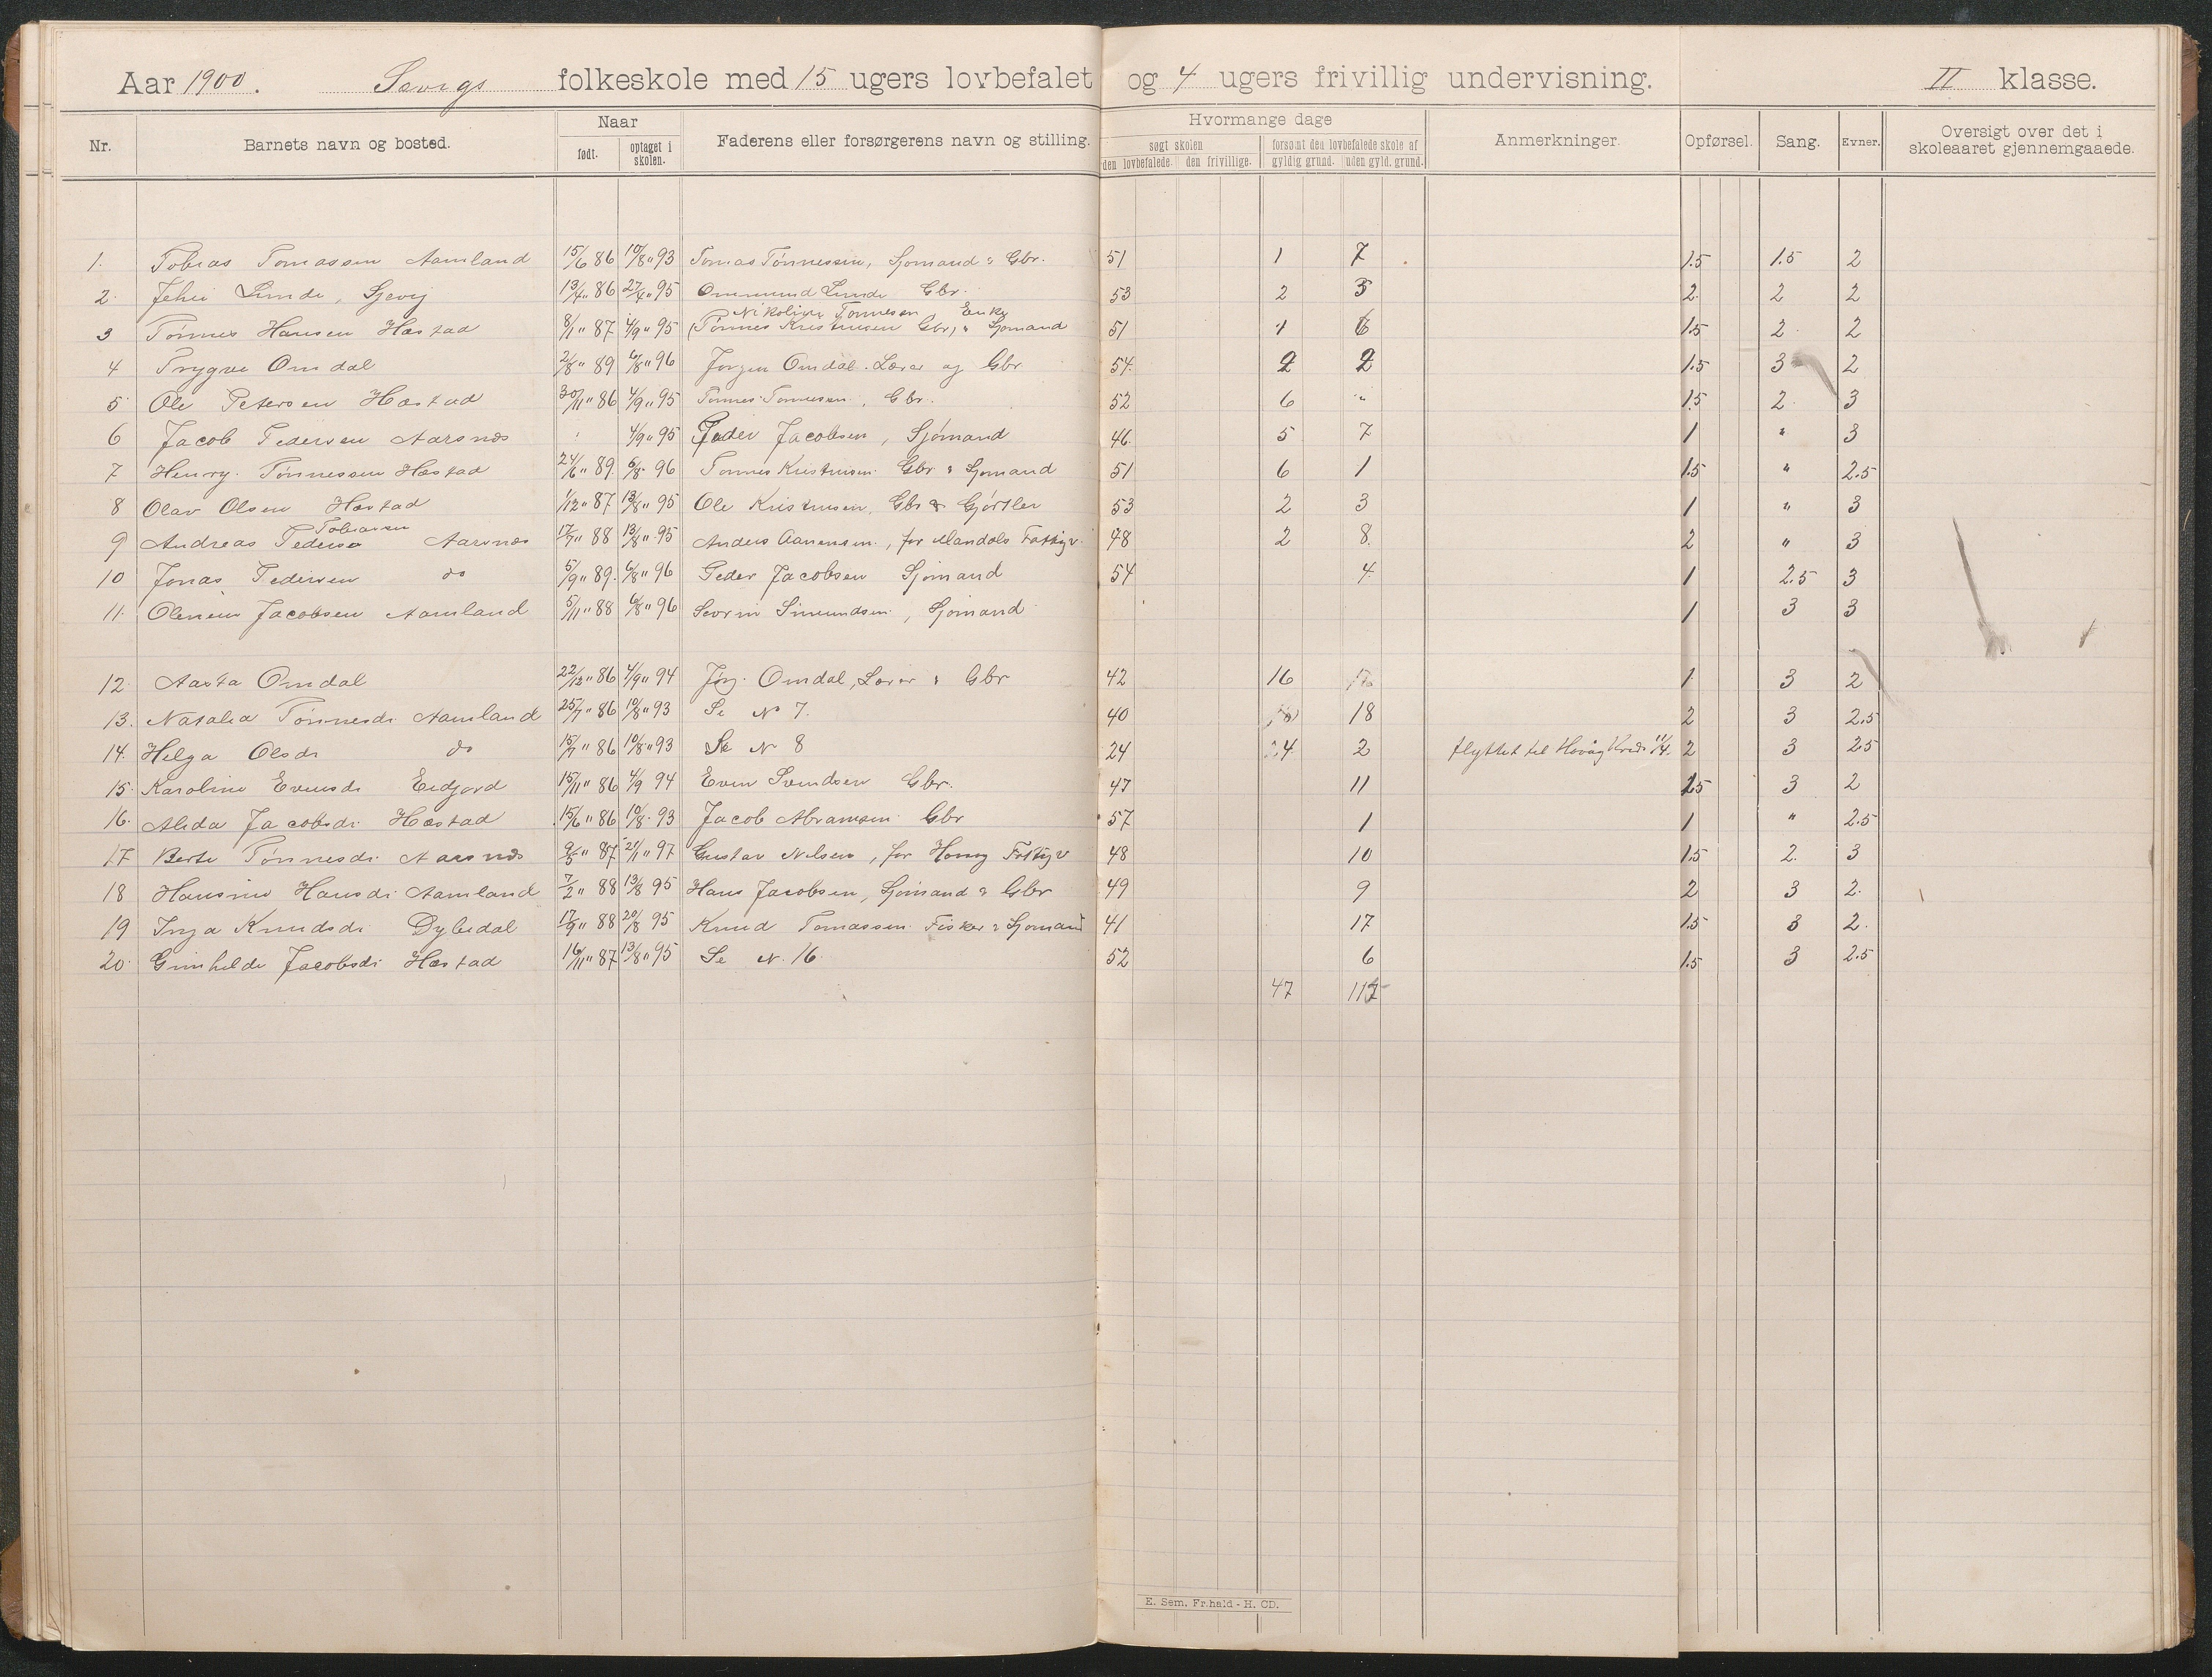 Aar 1900. folkeskole med 15 ugers lovbefalet og 4 ugers frivillig undervisning. II klasse.
Nr. Barnets navn og bosted. Naar født. optaget i skolen. Faderens eller forsørgerens navn og stilling. Hvormange dage søgt skolen den lovbefalede. den frivillige. forsømt den lovbefalede skole af gyldig grund. uden gyld. grund. Anmerkninger. Opførsel. Sang. Evner. Oversigt over det i skoleaaret gjennemgaaede.
1. Tobias Tomassen Aamland 15/6 86 10/8 " 93 Tomas Tønnessen, Sjømand & Gbr. 51 1 7 1.5 1.5 2
2. Lunde, 13/4 " 86 27/4 " 95 Ommund Lunde Gbr. 53 2 3 2. 2 2
Nikoline Tønnesen Enke
3 Tønnes Hansen Hæstad 8/1 " 87 4/9 " 95 (Tønnes Kristensen Gbr) & Sjømand 51 1 6 1.5 2. 2
4 Trygve Omdal 2/8 " 89 6/8 " 96 Jørgen Omdal. Lærer og Gbr 54. 2 2 1.5 3 2
5 Ole Petersen Hæstad 30/11 " 86 4/9 " 95 Tønnes Tønnesen, Gbr. 52 6 " 1.5 2. 3
6 Jacob Pedersen Aarsnæs 4/9 " 95 Peder Jacobsen, Sjømand 46. 5 7 1 " 3
7 Henry. Tønnessen Hæstad 24/6 " 89. 6/8 96 Tønnes Kristensen. Gbr & Sjømand 51 6 1 1.5 " 2.5
8 Olav Olsen Hæstad 1/12 " 87 13/8 " 95 Ole Kristensen, Gbr & Gjørtler 53 2 3 1 " 3
Tobiassen
9 Andreas Pederse Aarsnæs 17/7 " 88 13/8 " 95 Anders Aanensen, for Mandals Fattigv. 48 2 8. 2 " 3
10 Jonas Pedersen do 5/9 " 89. 6/8 " 96 Peder Jacobsen Sjømand 54 4. 1 2.5 3
11. Jacobsen Aamland 5/11 " 88 6/8 " 96 Simundsen, Sjømand 1 3 3
12. Aasta Omdal 22/12 " 86 4/9 " 94 Jørg. Omdal, Lærer & Gbr 42 16 1 3 2
13. Natalia Tønnesdr Aamland 25/7 " 86 10/8 " 93 Se No 7. 40 18 2 3 2.5
14. Helga Olsdr do 15/7 " 86 10/8 " 93 Se No 8 24 4 2 flyttet til Hovåg Kreds 11/4. 2 3 2.5
15. Karoline Evensdr Eidjord 15/11 " 86 4/9 94 Even Svendsen Gbr. 47 11 1.5 3 2
16. Alida Jacobsdr Hæstad 15/6 " 86 10/8. 93 Jacob Abramsen Gbr 57 1 1 " 2.5
17 Berte Tønnesdr Aarsnæs 9/5 " 87 21/1 " 97 Gustav Nilsen, for Fattigv 48 10 1.5 2. 3
18 Hansine Hansdr Aamland 7/2 " 88 13/8 95 Hans Jacobsen, Sjømand & Gbr 49 9 2 3 2.
19 Inga Knudsdr Dybedal 17/9 " 88 20/8 95 Knud Tomassen Fisker & Sjømand 41 17 1.5 3 2.
20. Gunhilde Jacobsdr Hæstad 16/11 " 87 13/8 " 95 Se N. 16. 52 6 1.5 3 2.5
47 117
E. Sem. Fr.hald - H. CD.